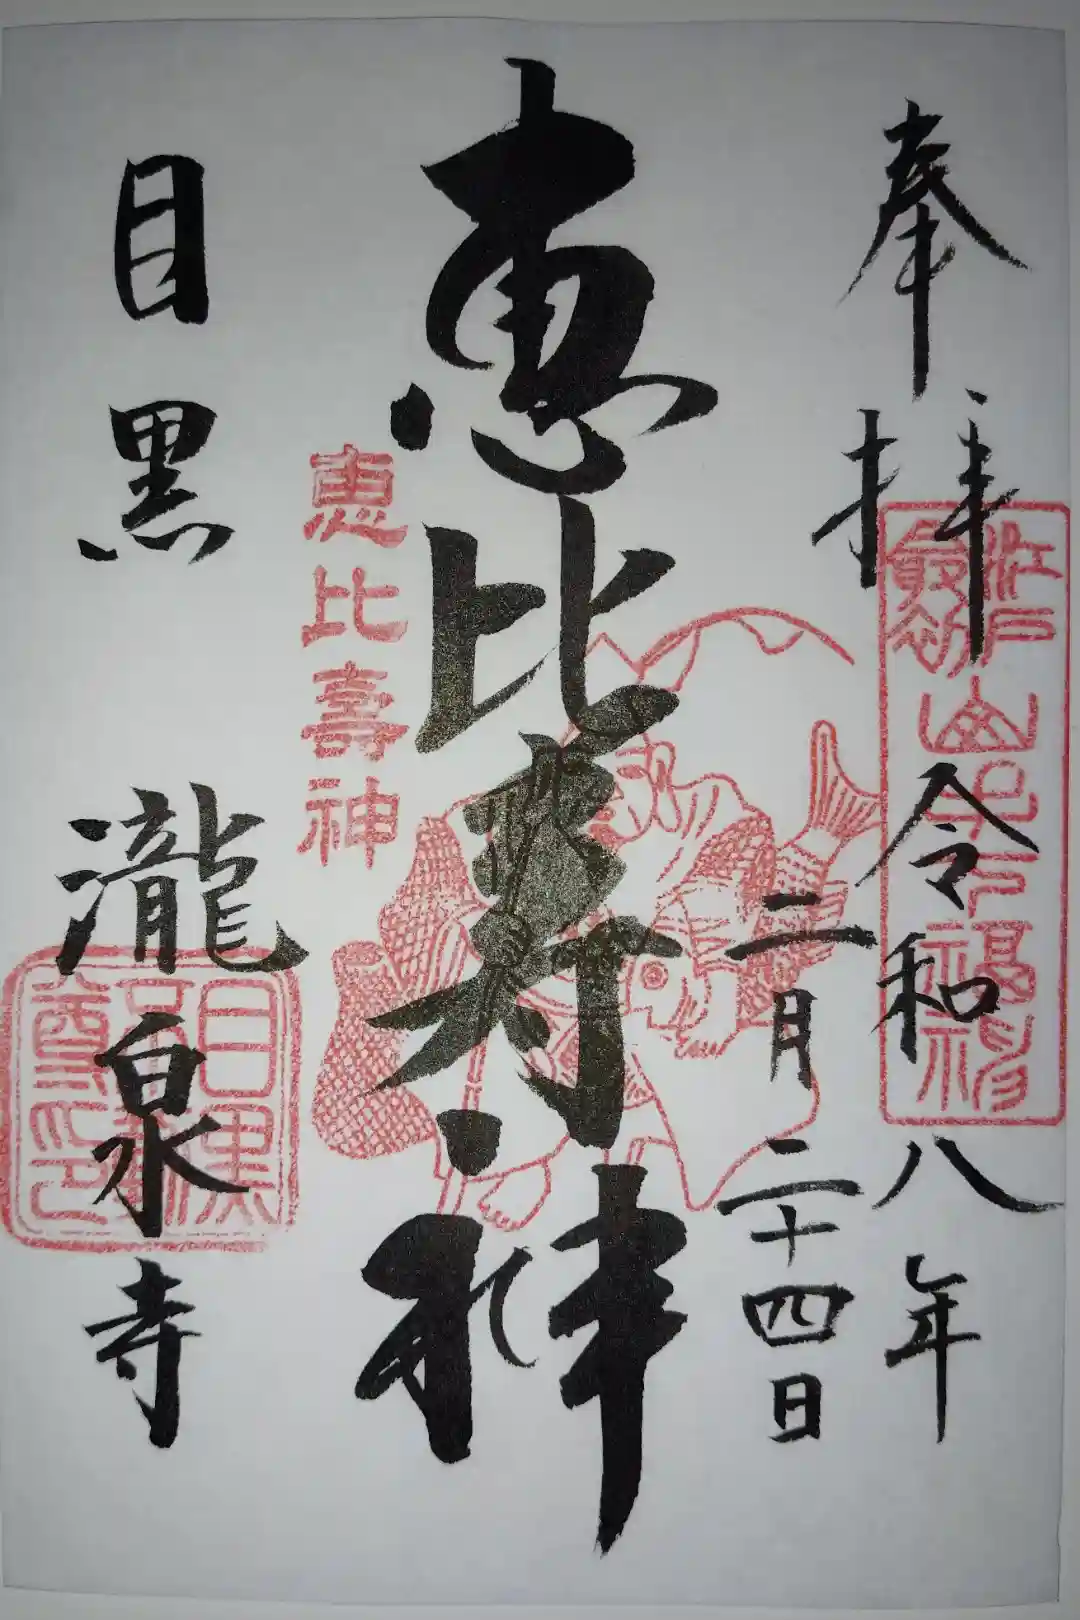 奉拝
江戸最初山手七福神
令和八年
二月二十四日
恵比寿神
恵比壽神
目黒 瀧泉寺
目黒不動尊印